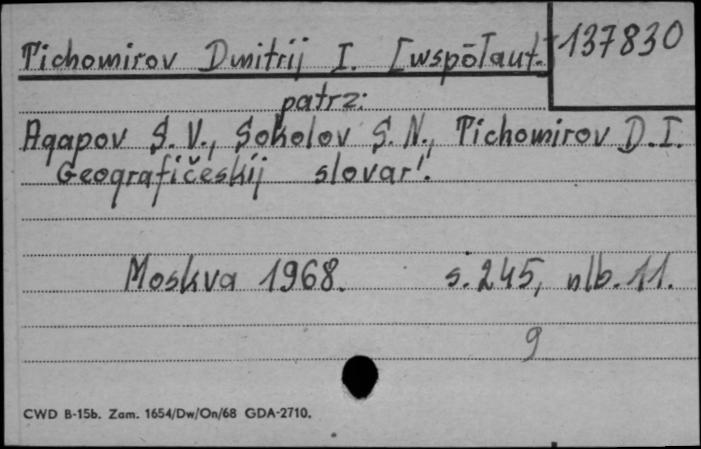 Tichomirov Dmitrij I. [współaut.] 137830
patrz:
Agapov S. V., Sokolov S. N., Tichomirov D. I.
Geografičeskij slovar'.
Moskva 1968. s. 245, nlb. 11.
9
CWD B-15b. Zam. 1654/Dw/On/68 GDA-2710.